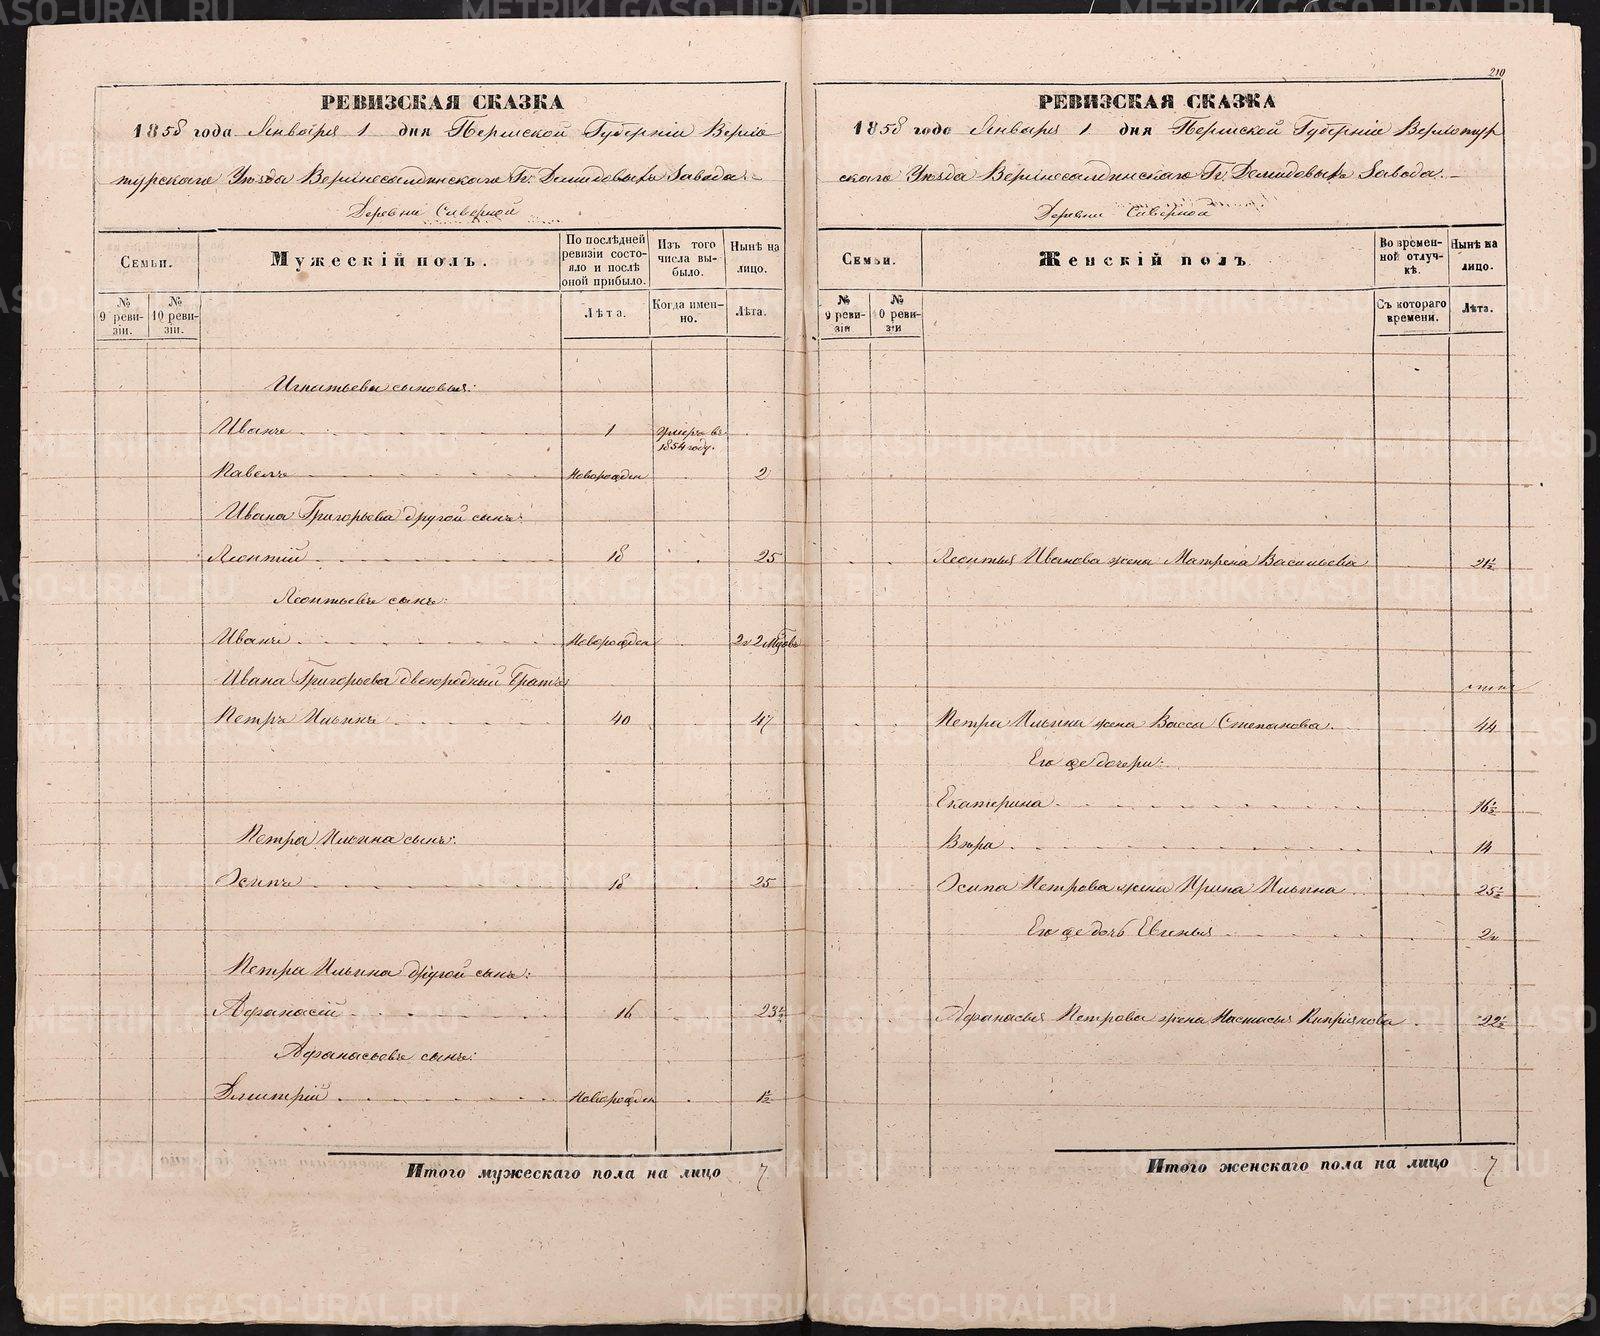 210
РЕВИЗСКАЯ СКАЗКА
1858 года Января 1 дня Пермской Губерніи Верхо
турскаго Уѣзда Верхнесалдинскаго Гг. Демидовыхъ Завода.
Деревни Сѣверной
Семьи.
Мужескій полъ.
По послѣдней ревизіи состояло и послѣ оной прибыло.
Изъ того числа выбыло.
Нынѣ на лицо.
№ 9 ревизіи.
№ 10 ревизіи.
Лѣта.
Когда именно.
Лѣта.
Игнатьевы сыновья:
Иванъ 1 Умеръ въ 1854 году.
Павелъ Новорожден 2
Ивана Григорьева другой сынъ:
Леонтій 18 25
Леонтьевъ сынъ:
Иванъ Новорожден 2 2
Ивана Григорьева двоюродный братъ
Петръ Ильинъ 40 47
Петра Ильина сынъ:
Осипъ 18 25
Петра Ильина другой сынъ:
Афанасій 16 23½
Афанасьевъ сынъ:
Дмитрій Новорожден 1½
Итого мужескаго пола на лицо 7
РЕВИЗСКАЯ СКАЗКА
1858 года Января 1 дня Пермской Губерніи Верхотур
скаго Уѣзда Верхнесалдинскаго Гг. Демидовыхъ Завода.
Деревни Сѣверной
Семьи.
Женскій полъ
Во временной отлучкѣ.
Нынѣ на лицо.
№ 9 ревизіи
№ 10 ревизіи
Съ котораго времени.
Лѣта.
Леонтья Иванова жена Матрена Васильева 21½
Петра Ильина жена Васса Степанова 44
Его же дочери:
Екатерина 16½
Вѣра 14
Осипа Петрова жена Ирина Ильина 25½
Его же дочь Евгенья 2
Афанасья Петрова жена Настасья Кипріянова 22½
Итого женскаго пола на лицо 7
METRIKI.GASO-URAL.RU